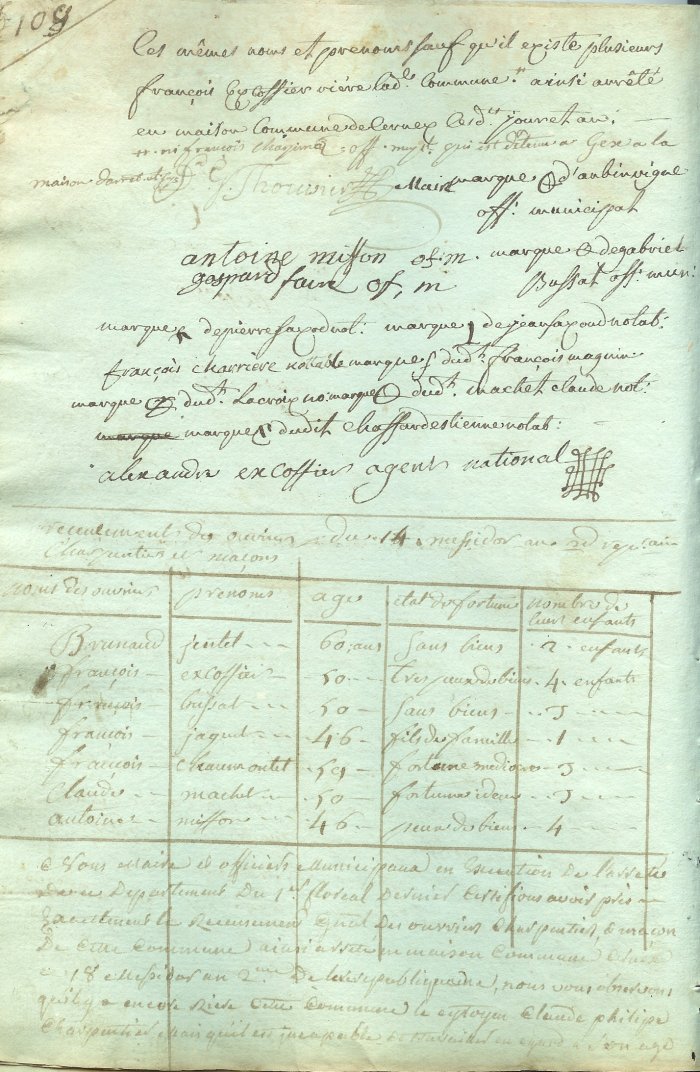 109
les mêmes noms et prenoms sauf qu'il existe plusieurs
françois Excoffier riére lad.e Commune. ainsi arrêté
en maison Commune de Cernex Cesd. jour et an:
françois off. mup. qui est détenu a Gex a la
maison d'arret
J. Thouvier Maire marque d'aubin vigne
off. municipal
antoine misson of. m. marque de gabriel
gaspard faire of, m Bussat off. mun:
marque de pierre saxod not: marque de jean saxoud notab:
françois charriere nottable marque dud.t françois magnin
marque dud.t Lacroix no: marque dud.t machet claude not:
marque marque dudit Chaffard estienne notab:
alexandre excoffier agent national
recensement des ouvriers du 14 messidor an 2d
Charpentiers et maçons
noms des ouvriers prenoms age etat de fortune nombre de
leurs enfants
Brunaud jentet 60 ans Sans biens 2 enfants
françois excoffier 50 tres peux de biens 4 enfants
françois bussat 50 Sans biens 3
françois jaquet 46 fils de famille 1
françois chaumontet 59 fortune mediocre 3
Claude machet 50 fortune idem 3
antoine misson 46 peux de biens 4
Nous Maire et officiers Municipaux en Execution de l'arreté
Departement Du 1er floreal Dernier Certifions avoir près
Exactement le Recensement des ouvriers Charpentiers & maçon
De Cette Commune ainsi arreté en maison Commune
18 Messidor an 2me De la republique, nous vous observons
qu'il y a encore riére Cette Commune le citoyen Claude philipe
Charpentier Mais qu'il est incapable de travailler en egard a son age